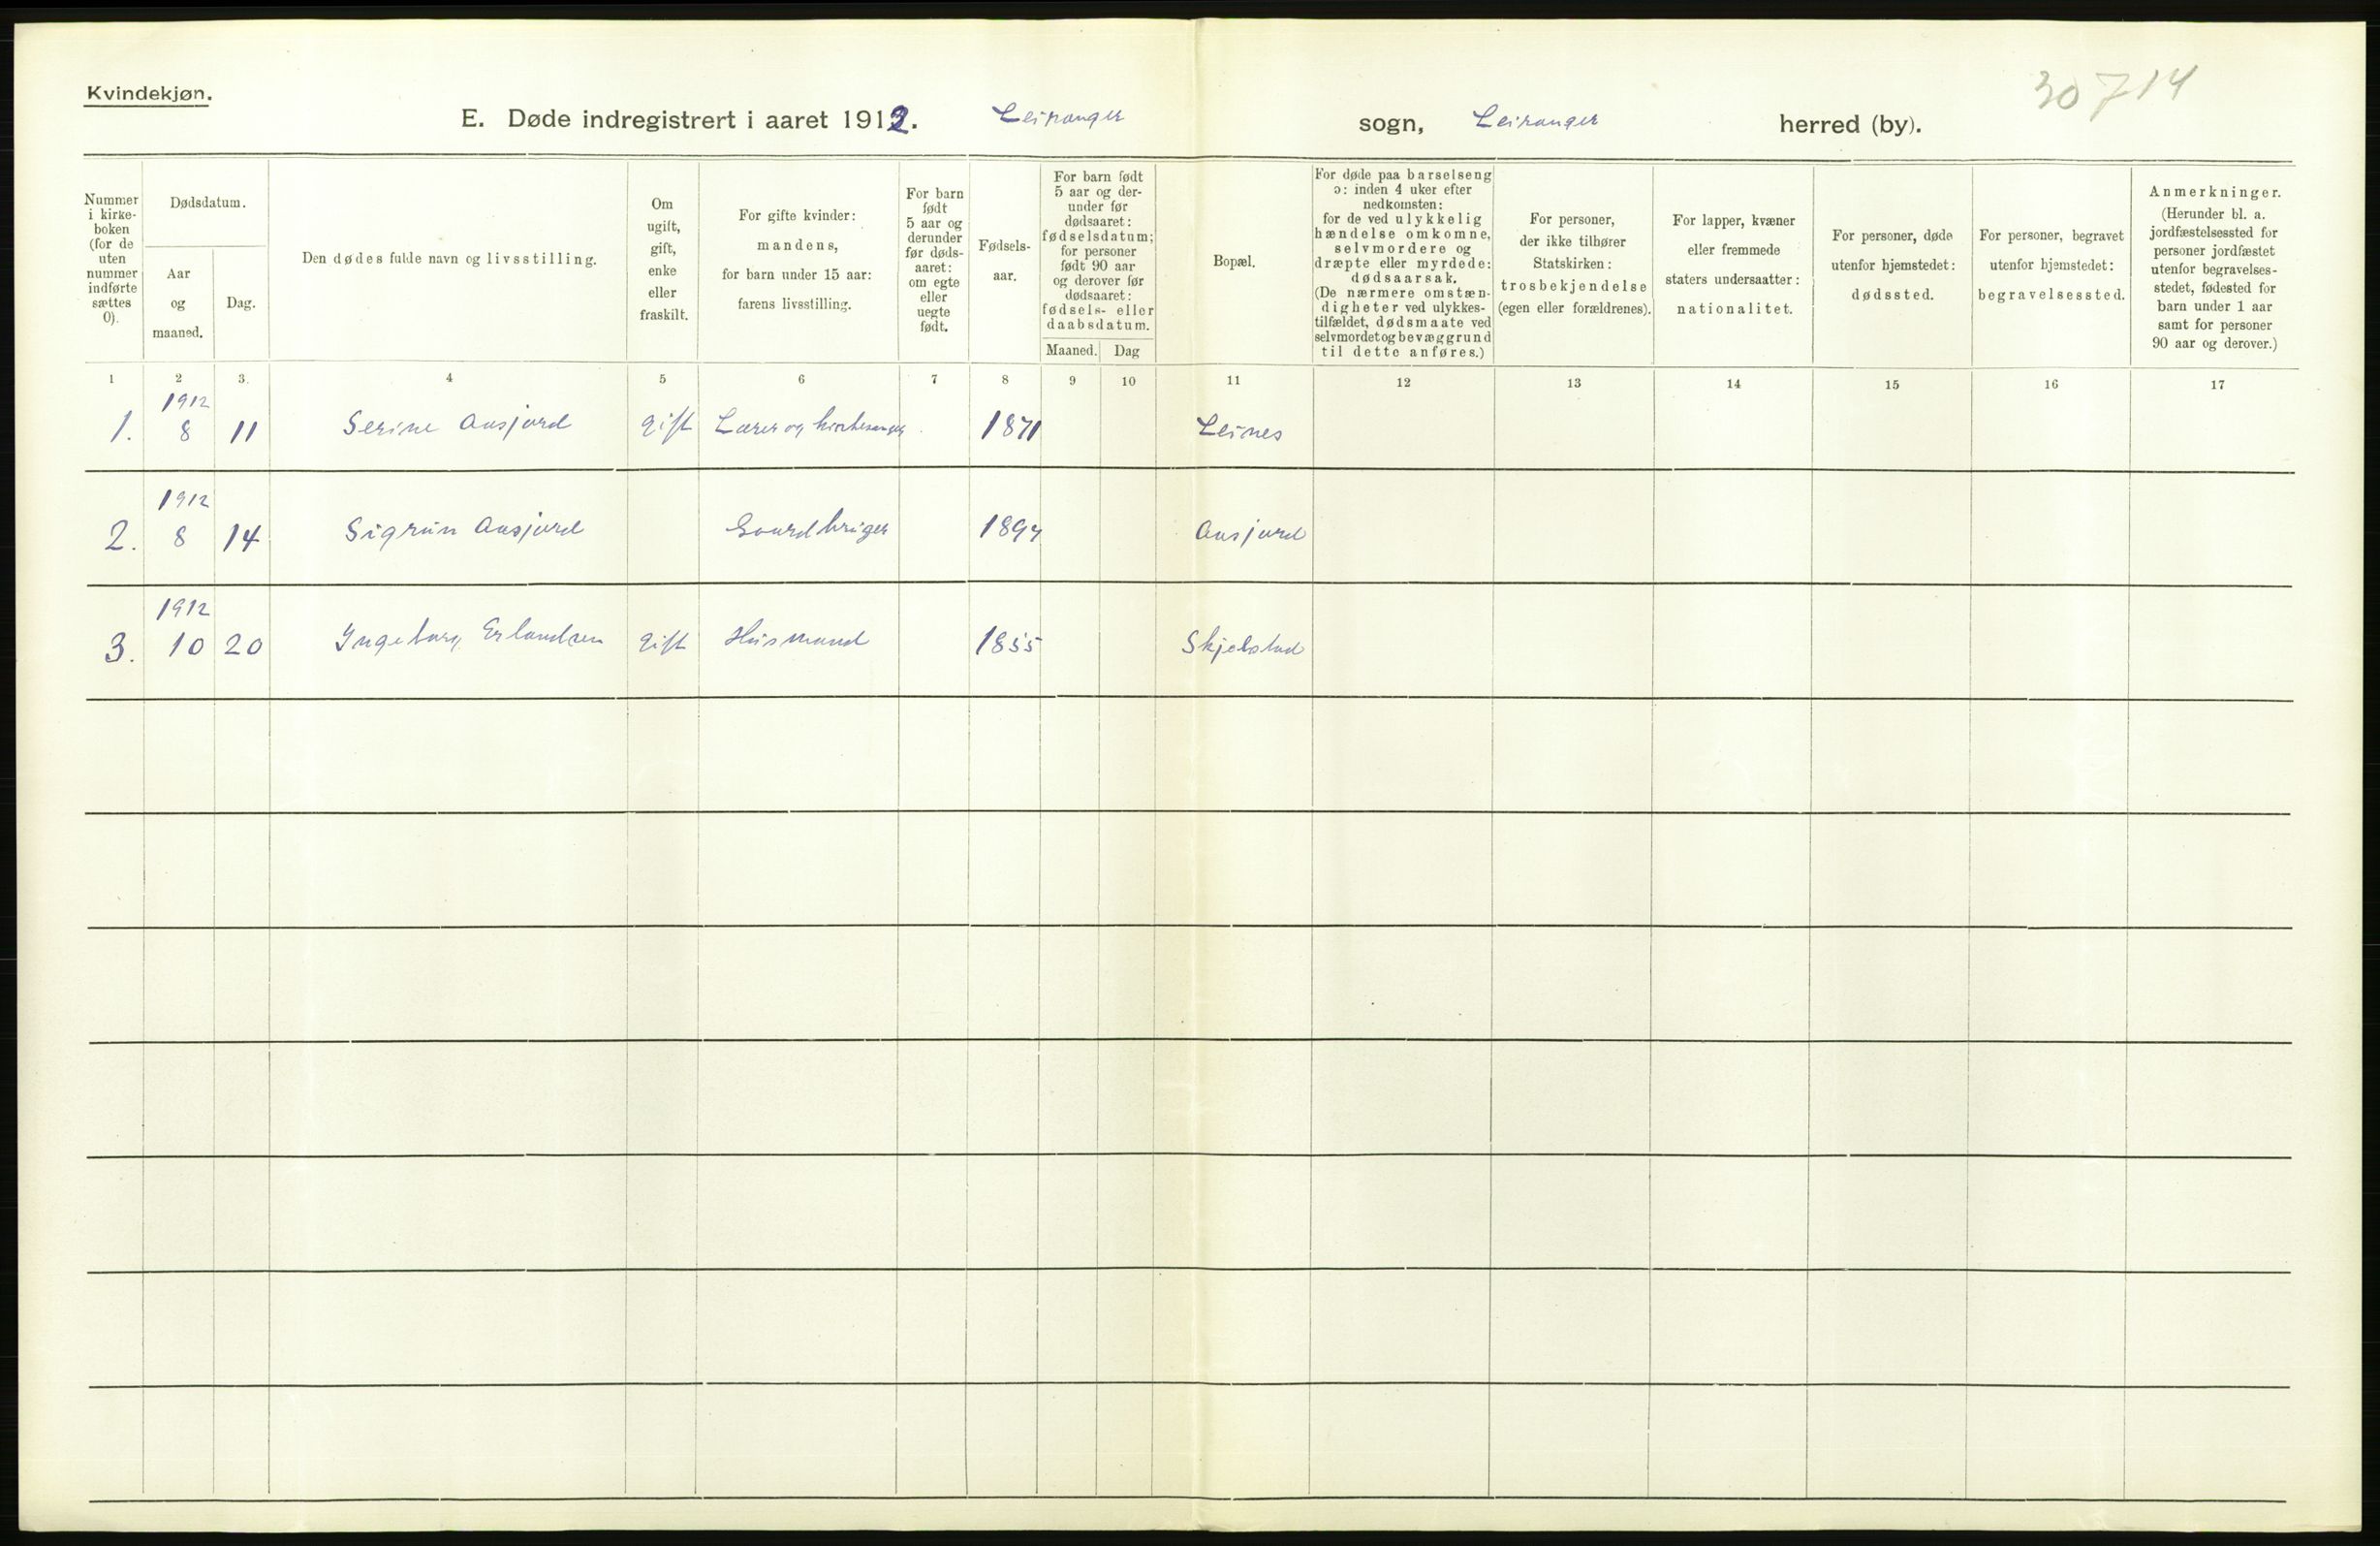 Kvindekjøn.
30714
E. Døde indregistrert i aaret 1912. Leiranger sogn, Leiranger herred (by).
Nummer
i kirke-
boken
(for de
uten
nummer
indførte
sættes
0).
Dødsdatum.
Aar
og
maaned.
Dag.
Den dødes fulde navn og livsstilling.
Om
ugift,
gift,
enke
eller
fraskilt.
For gifte kvinder:
mandens,
for barn under 15 aar:
farens livsstilling.
For barn
født
5 aar og
derunder
før døds-
aaret:
om egte
eller
uegte
født.
Fødsels-
aar.
For barn født
5 aar og der-
under før
dødsaaret:
fødselsdatum;
for personer
født 90 aar
og derover før
dødsaaret:
fødsels- eller
daabsdatum.
Maaned. Dag
Bopæl.
For døde paa barselseng
ɔ: inden 4 uker efter
nedkomsten:
for de ved ulykkelig
hændelse omkomne,
selvmordere og
dræpte eller myrdede:
dødsaarsak.
(De nærmere omstæn-
digheter ved ulykkes-
tilfældet, dødsmaate ved
selvmordet og bevæggrund
til dette anføres.)
For personer,
der ikke tilhører
Statskirken:
trosbekjendelse
(egen eller forældrenes).
For lapper, kvæner
eller fremmede
staters undersaatter:
nationalitet.
For personer, døde
utenfor hjemstedet:
dødssted.
For personer, begravet
utenfor hjemstedet:
begravelsessted.
Anmerkninger.
(Herunder bl. a.
jordfæstelsessted for
personer jordfæstet
utenfor begravelses-
stedet, fødested for
barn under 1 aar
samt for personer
90 aar og derover.)
1 2 3. 4 5 6 7 8 9 10 11 12 13 14 15 16 17
1912
1. 8 11 Serine Aasjord gift Lærer og kirkesanger 1871 Leines
1912
2. 8 14 Sigrun Aasjord Gaardbruger 1897 Aasjord
1912
3. 10 20 Ingeborg Erlandsen gift Husmand 1855 Skjelstad